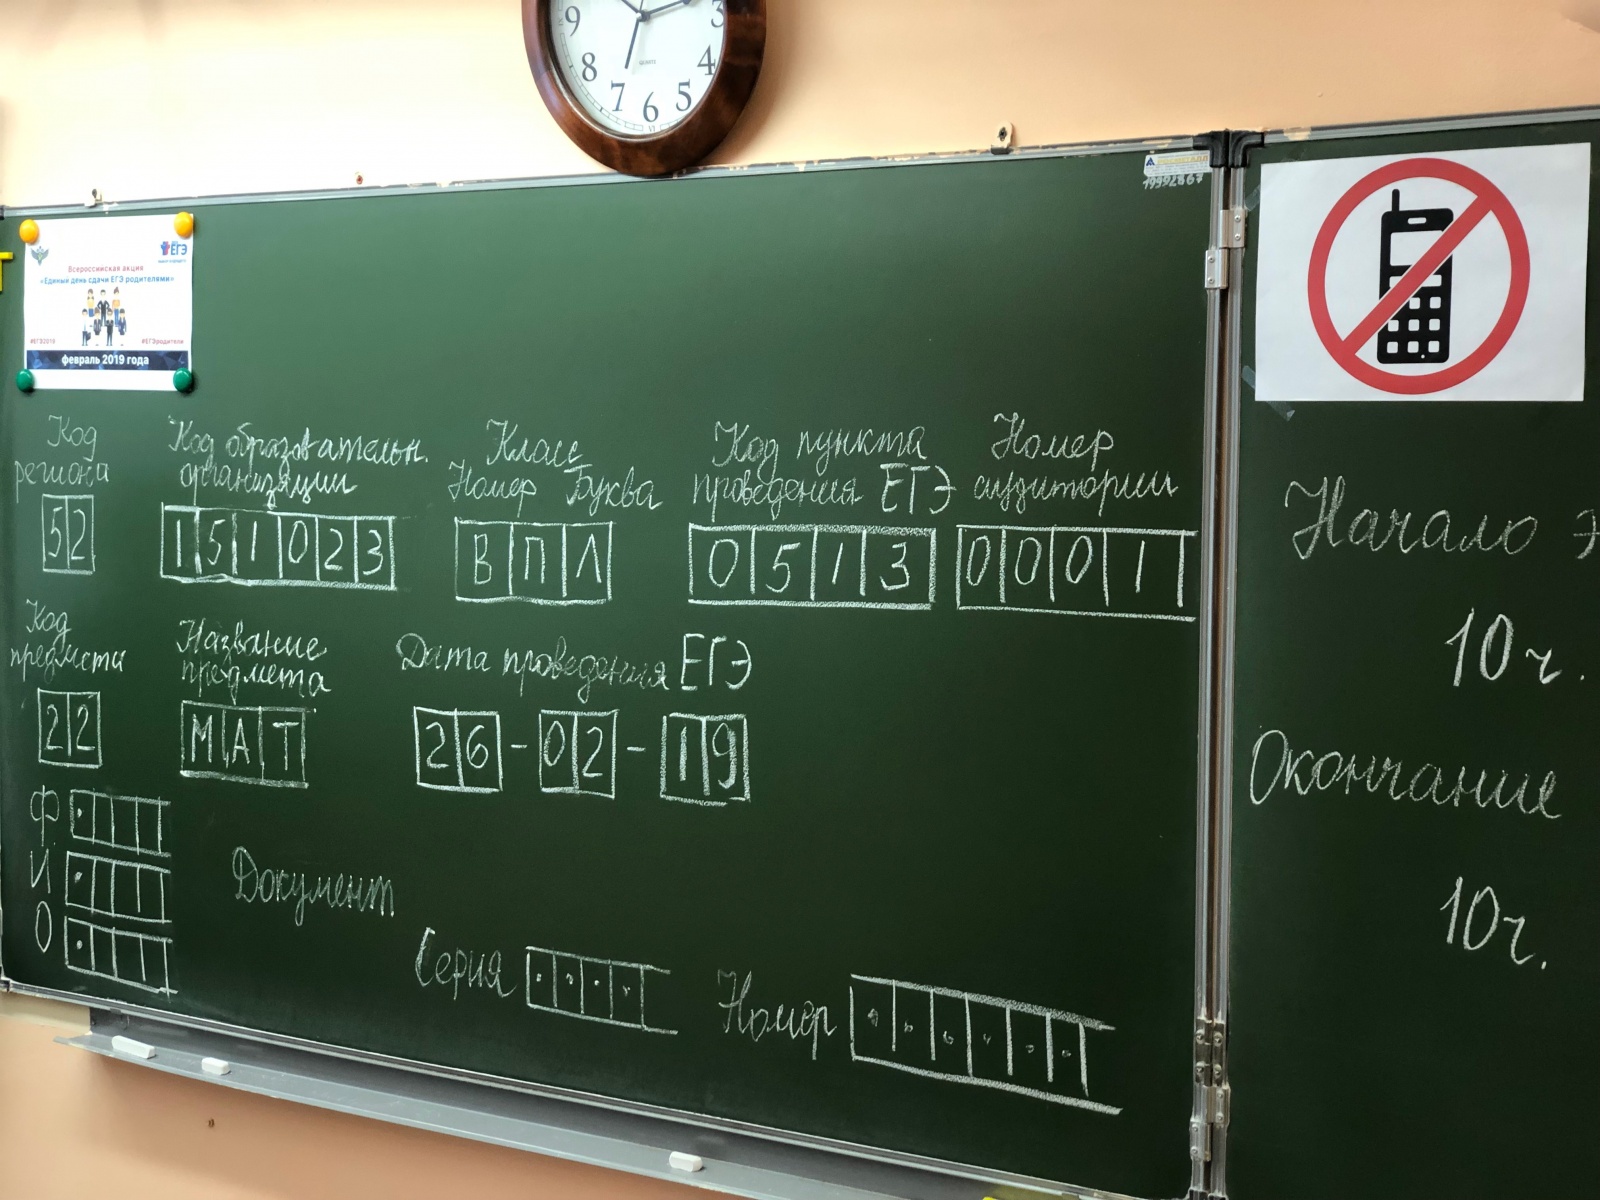 9 3
8 4
7 6 5
QUARTZ
VI
19992867
ЕГЭ
Всероссийская акция
«Единый день сдачи ЕГЭ родителями»
#ЕГЭ2019 #ЕГЭродители
февраль 2019 года
Код региона
52
Код образовательн. организации
151023
Класс
Номер Буква
ВПЛ
Код пункта проведения ЕГЭ
0513
Номер аудитории
0001
Код предмета
22
Название предмета
МАТ
Дата проведения ЕГЭ
26-02-19
Ф
И
О
Документ
Серия
Номер
Начало э
10ч.
Окончание
10ч.